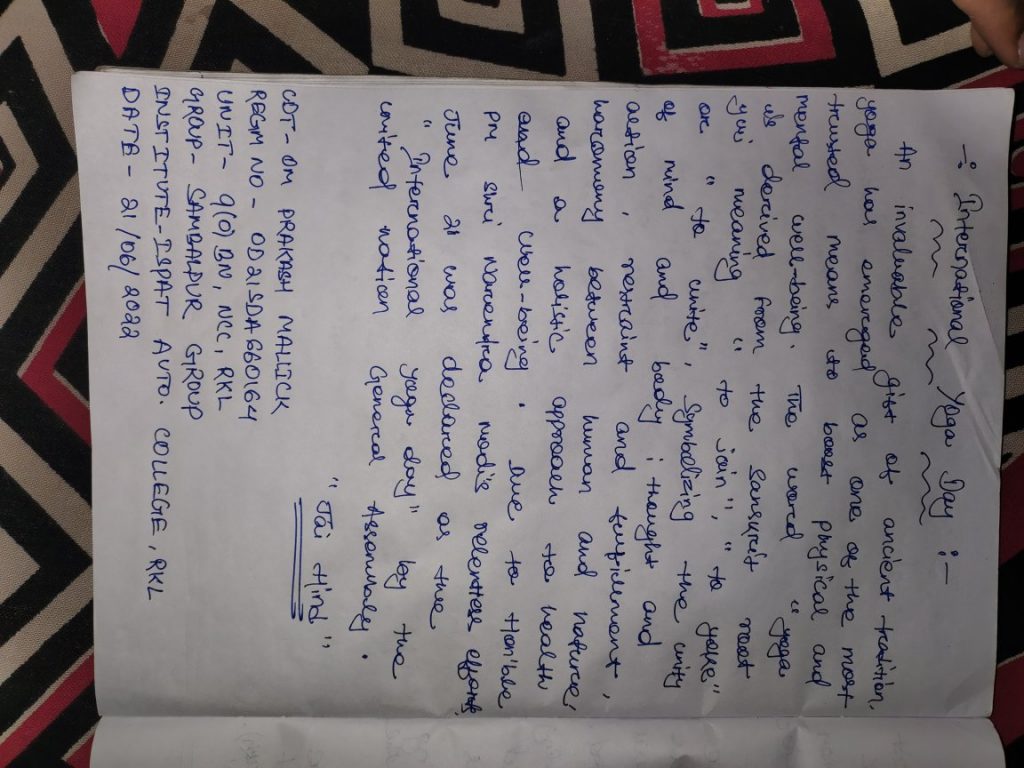 -: International Yoga Day :-
An invaluable gist of ancient tradition.
yoga has emerged as one of the most
trusted means to boost physical and
mental well-being. The word "yoga
is derived from the sanskrit root
yuj meaning "to join", "to yoke"
or "to unite", symbolizing the unity
of mind and body; thought and
action, restraint and fulfilment,
harmony between human and nature,
and a holistic approach to health
and well-being. Due to Hon'ble
PM Shri Narendra modi's relentless efforts,
June 21 was declared as the
"International yoga day" by the
united nation General Assembly.
"Jai Hind"
CDT- OM PRAKASH MALLICK
REGM NO - OD21SDA660164
UNIT- 9(O) BN, NCC, RKL
GROUP- SAMBALPUR GROUP
INSTITUTE-ISPAT AUTO. COLLEGE, RKL
DATE - 21/06/2022